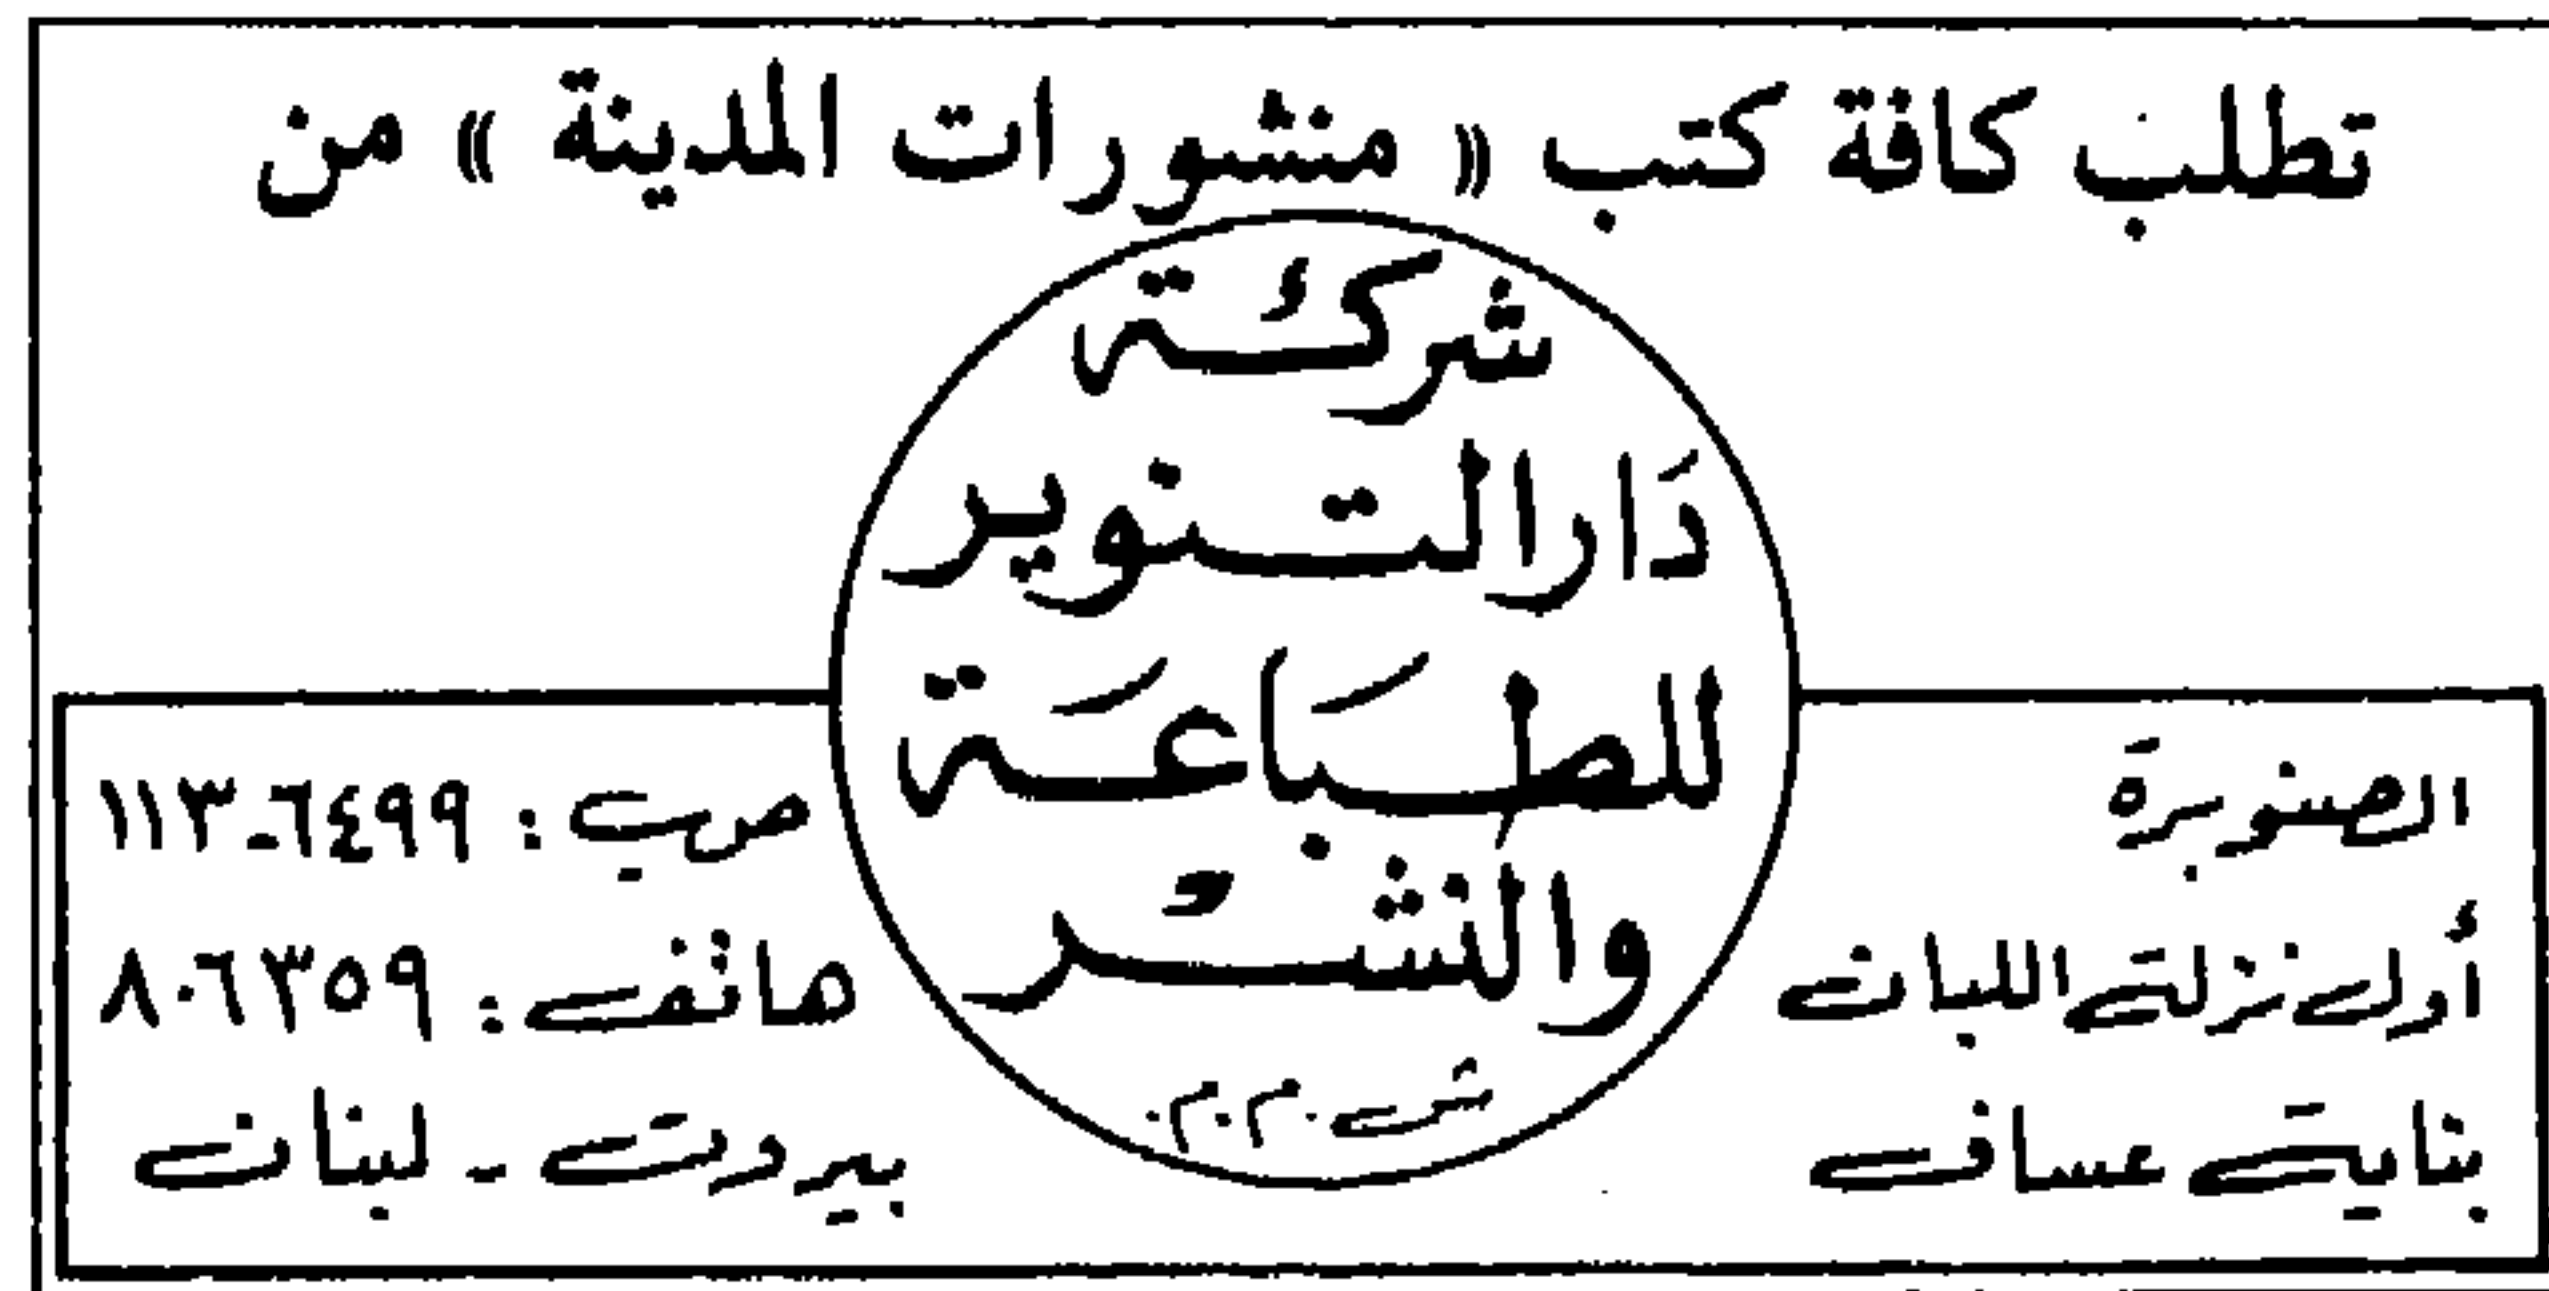 تطلب كافة كتب « منشورات المدينة » من
شركة
دَار التنوير
للطبَاعَة
والنشر
ش.م.م.
الصنوبرة
أول نزلة اللبان
بناية عساف
ص ب : ٦٤٩٩-١١٣
هاتف : ٨٠٦٣٥٩
بيروت - لبنان